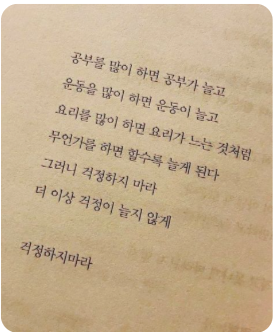 공부를 많이 하면 공부가 늘고
운동을 많이 하면 운동이 늘고
요리를 많이 하면 요리가 느는 것처럼
무언가를 하면 할수록 늘게 된다
그러니 걱정하지 마라
더 이상 걱정이 늘지 않게
걱정하지마라